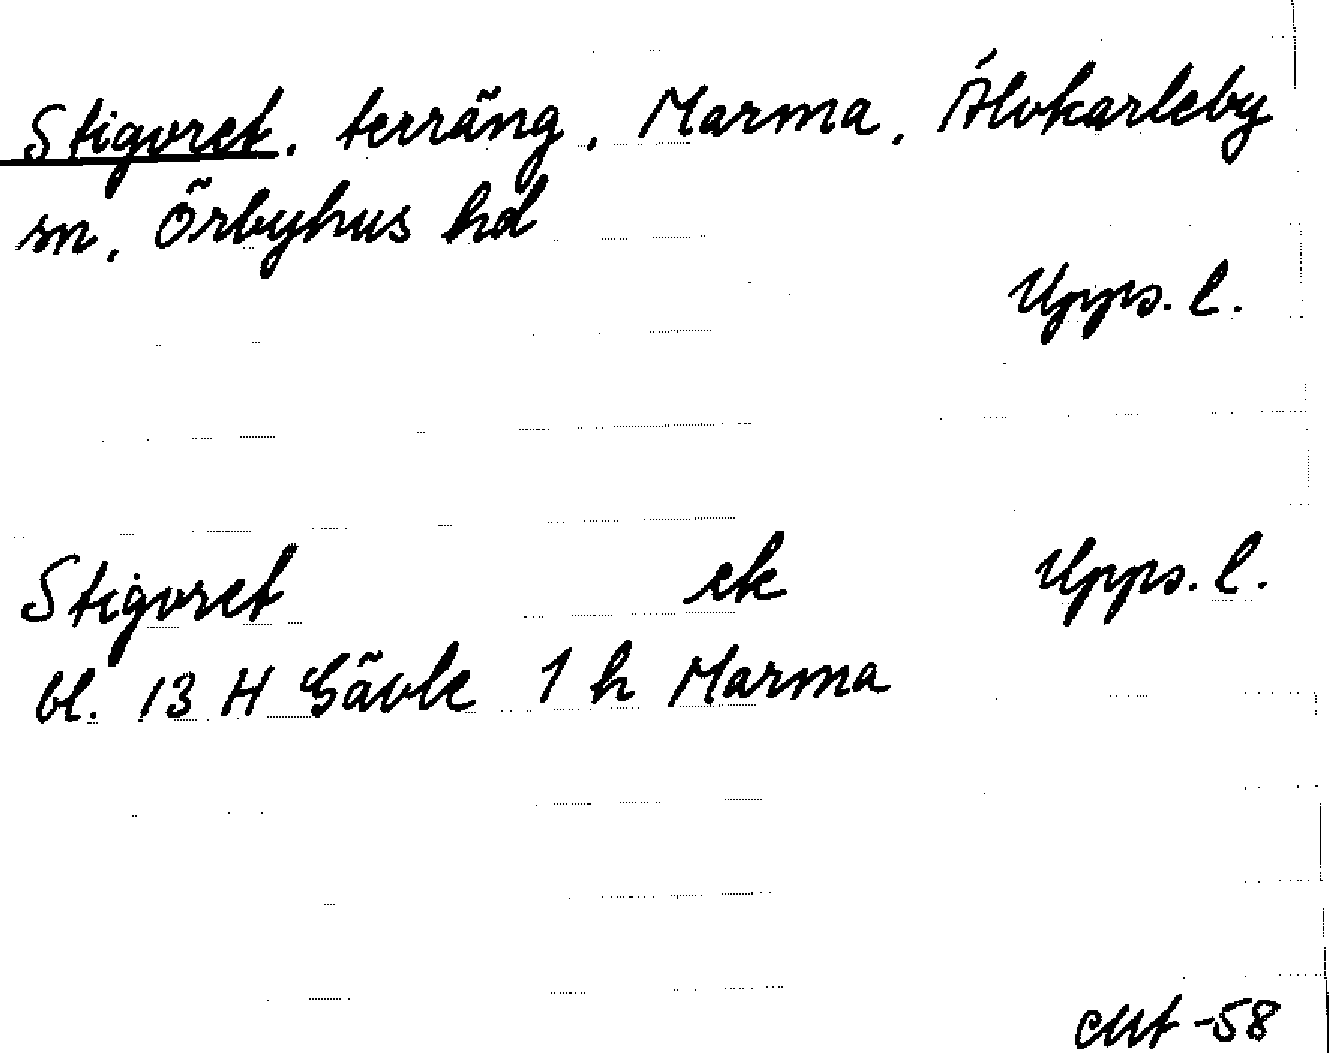 Stigoret, terräng, Marma, Älvkarleby
sn, Örbyhus hd
Upps. l.
Stigoret ek Upps. l.
bl. 13 H Gävle 1 h Marma
-58